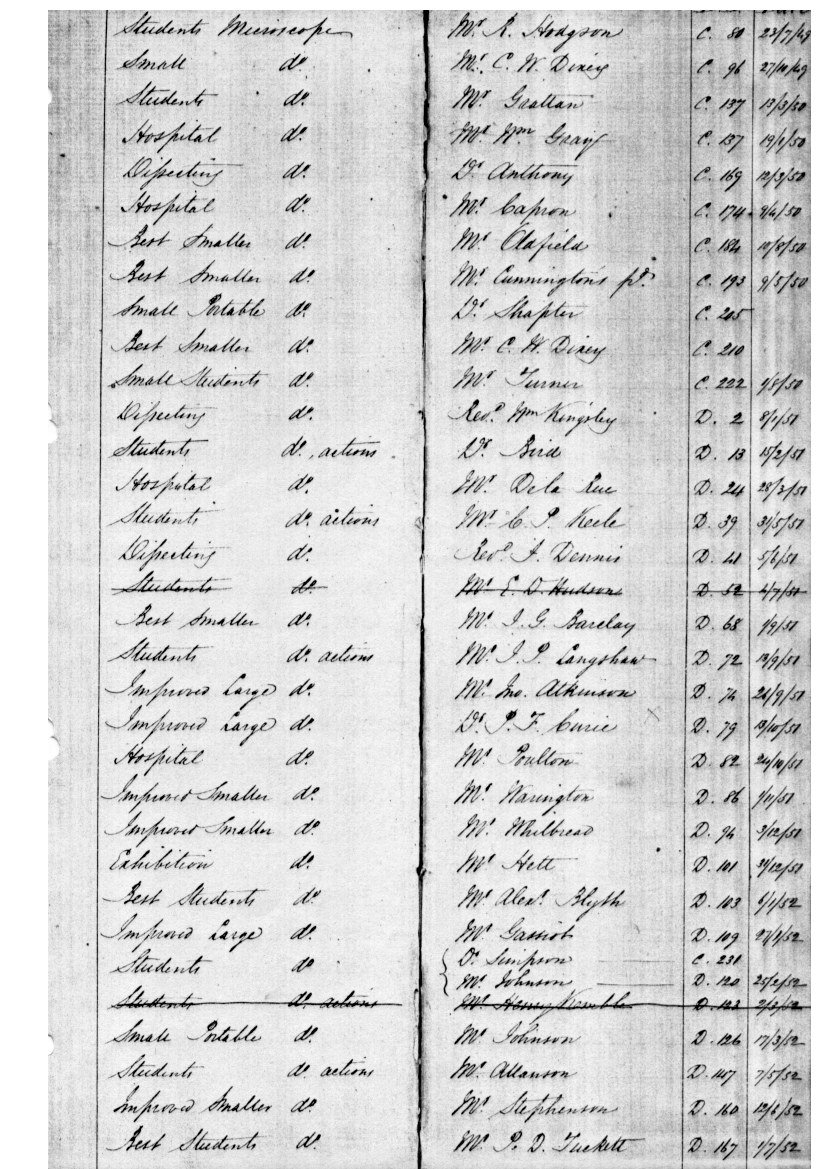 Students Microscope Mr. R. Hodgson C. 80 23/7/49
Small do. Mr. C. W. Dixey C. 96 27/10/49
Students do. Mr. Grattan C. 137 13/3/50
Hospital do. Mr. Wm. Gray C. 137 19/1/50
Dissecting do. Dr. Anthony C. 169 12/3/50
Hospital do. Mr. Capron C. 174 9/4/50
Best Smaller do. Mr. Oldfield C. 184 10/8/50
Best Smaller do. Mr. Cunnington's C. 193 9/5/50
Small Portable do. Dr. Shapter C. 205
Best Smaller do. Mr. C. W. Dixey C. 210
Small Students do. Mr. Turner C. 222 1/8/50
Dissecting do. Revd. Wm Kingsley D. 2 8/1/51
Students do., actions Dr. Bird D. 13 15/2/51
Hospital do. Mr. De la Rue D. 24 28/3/51
Students do. actions Mr. C. P. Keele D. 39 31/5/51
Dissecting do. Revd. J. Dennis D. 41 5/6/51
Students do. Mr. E. D. Hudson D. 52 4/7/51
Best Smaller do. Mr. J. G. Barclay D. 68 1/9/51
Students do. actions Mr. J. P. Langshaw D. 72 13/9/51
Improved Large do. Mr. Jno. Atkinson D. 74 24/9/51
Improved Large do. Dr. P. F. Curie D. 79 13/10/51
Hospital do. Mr. Poulton D. 82 24/10/51
Improved Smaller do. Mr. Warington D. 86 1/11/51
Improved Smaller do. Mr. Whitbread D. 94 3/12/51
Exhibition do. Mr. Hett D. 101 31/12/51
Best Students do. Mr. Alexr. Blyth D. 103 6/1/52
Improved Large do. Mr. Gassiot D. 109 27/1/52
Students do. Dr. Simpson C. 231
Mr. Johnson D. 120 25/2/52
Students do. actions Mr. Henry Kemble D. 123 2/3/52
Small Portable do. Mr. Johnson D. 126 17/3/52
Students do. actions Mr. Allanson D. 147 7/5/52
Improved Smaller do. Mr. Stephenson D. 160 12/6/52
Best Students do. Mr. P. D. Tuckett D. 167 1/7/52